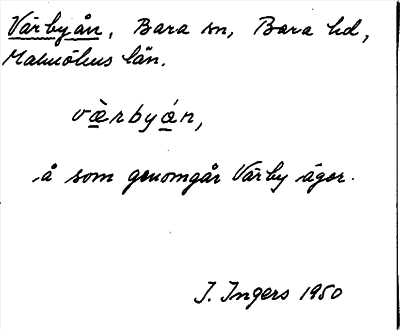 Värbyån, Bara sn, Bara hd,
Malmöhus län.
värbyán,
å som genomgår Värby ägor.
I. Ingers 1950